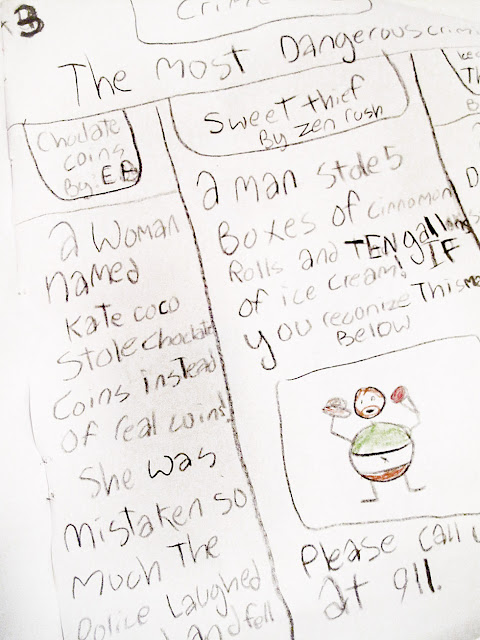 B
Crime
The Most Dangerous crim
Choclate
coins
By: EB
a woman
named
Kate coco
Stole choclate
coins instead
of real coins!
She was
mistaken so
much The
Police Laughed
and fell
Sweet thief
By zen rush
a man stole 5
Boxes of cinnomon
Rolls and TEN gallons
of ice cream! IF
you reconize This
Below
Please call u
at 911.
Th
B
D